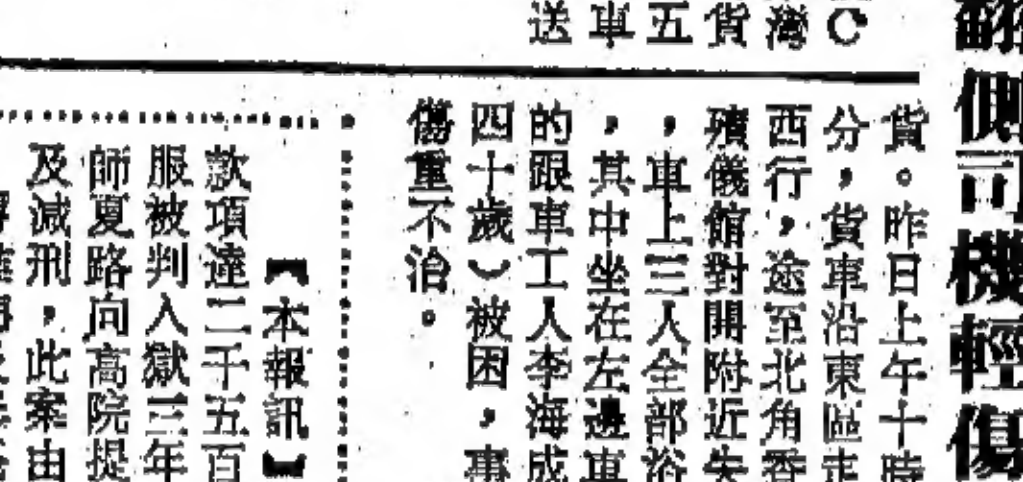 翻側司機輕傷
C
灣
貨
五
車
送
貨。昨日上午十時
分，貨車沿東區走
西行，途至北角香
殯儀館對開附近失
，車上三人全部浴
，其中坐在左邊車
的跟車工人李海成
四十歲）被困，事
傷重不治。
【本報訊】
款項達二千五百
服被判入獄三年
師夏路向高院提
及減刑，此案由